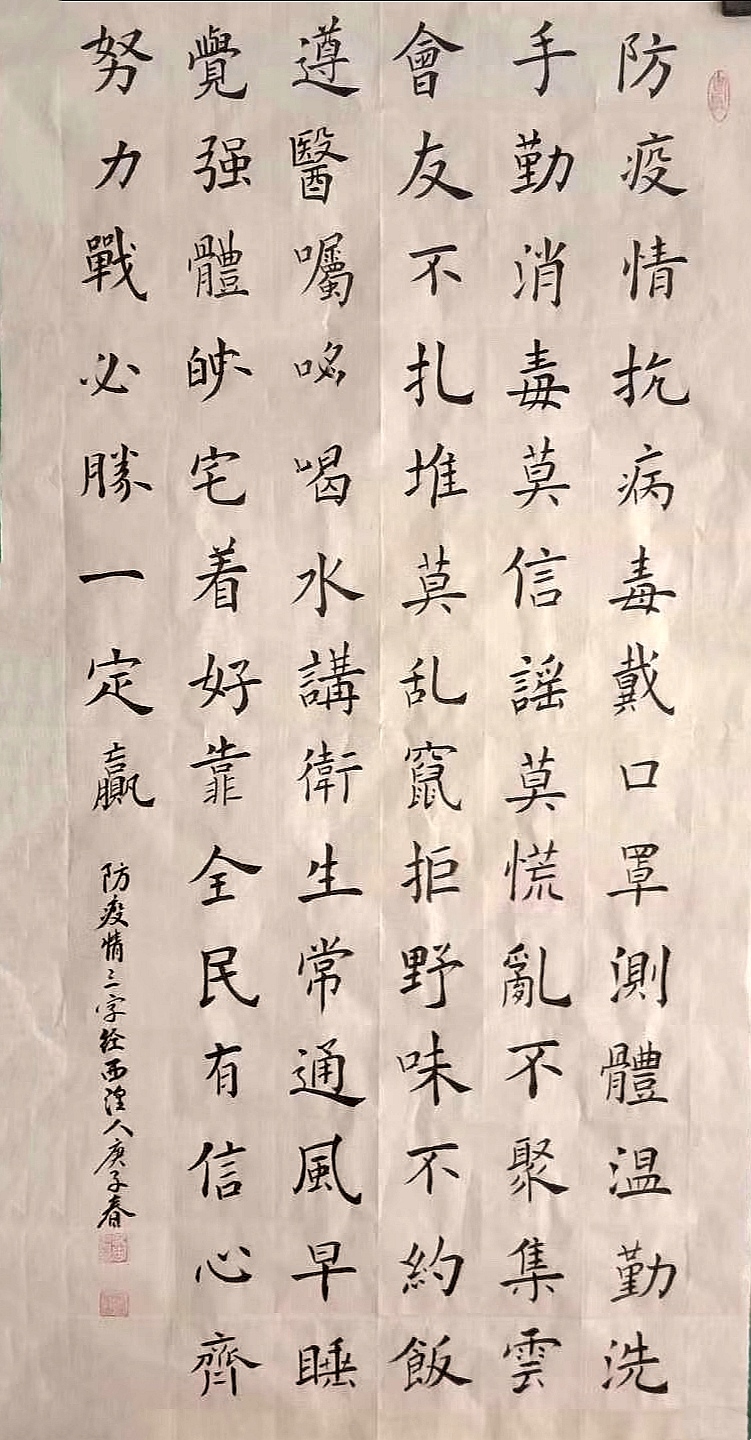 防疫情抗病毒戴口罩測體温勤洗
手勤消毒莫信謡莫慌亂不聚集雲
會友不扎堆莫乱竄拒野味不約飯
遵醫囑喝水講衛生常通風早睡
覺强體宅着好靠全民有信心齊
努力戰必勝一定贏
防疫情三字经西人庚子春